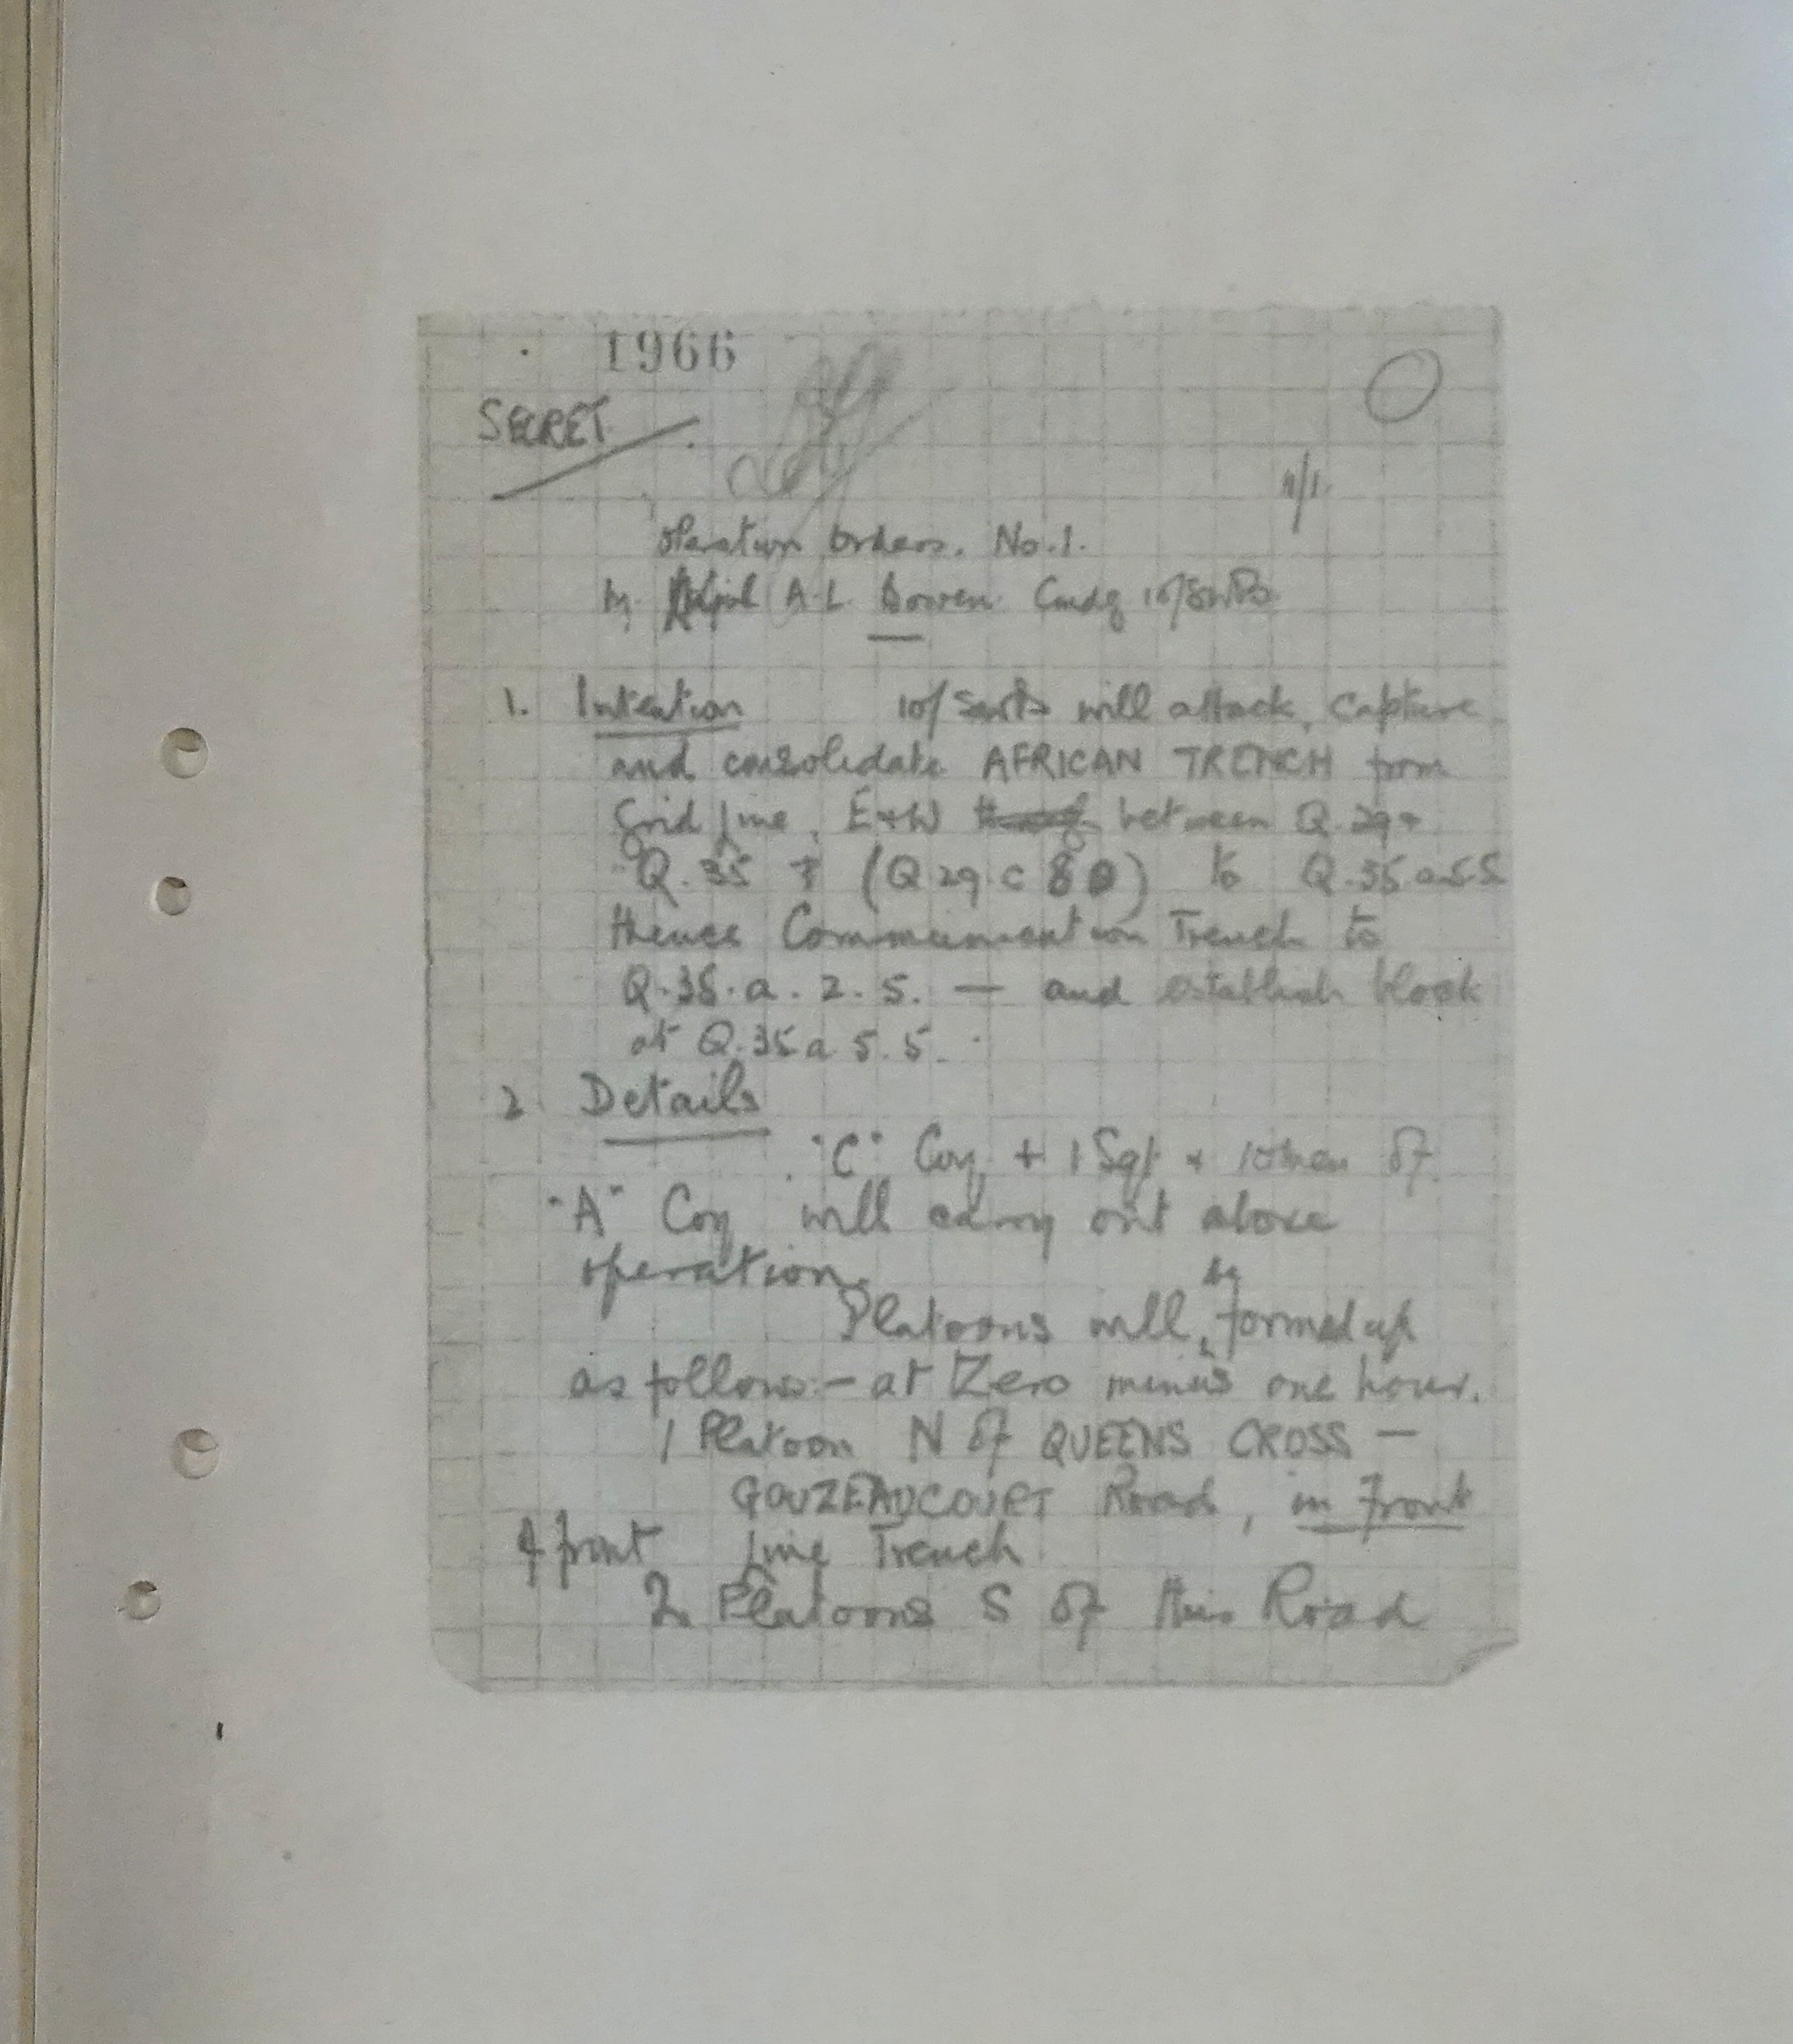 1966
SECRET
1/1.
Operation Orders. No. 1.
by A.L. Bowen Cmdg 10/SWBs
1. Intention 10/SWBs will attack, capture
and consolidate AFRICAN TRENCH from
Grid line, E+W between Q.29 +
Q.35 (Q 29 c 8 0) to Q.35 a.5.5
thence Communication Trench to
Q.35.a.2.5. — and establish block
at Q.35 a 5.5.
2. Details
"C" Coy + 1 Sgt + 10 men of
"A" Coy will carry out above
operation.
be
Platoons will formed up
as follows:- at Zero minus one hour.
1 Platoon N of QUEENS CROSS —
GOUZEAUCOURT Road, in Front
of front line Trench
2 Platoons S of this Road